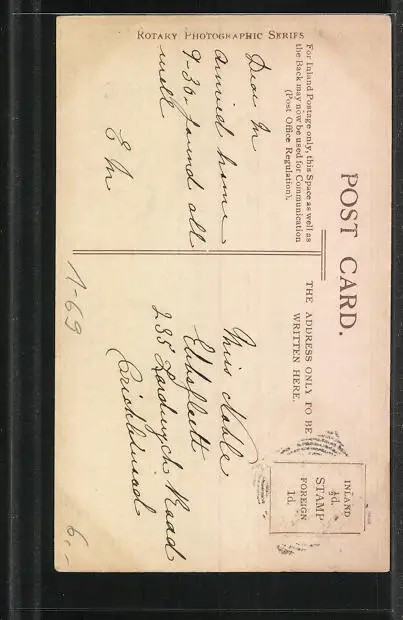 ROTARY PHOTOGRAPHIC SERIES
POST CARD.
For Inland Postage only, this Space as well as
the Back may now be used for Communication
(Post Office Regulation).
THE ADDRESS ONLY TO BE
WRITTEN HERE.
INLAND
½d.
STAMP
FOREIGN
1d.
Dear M
arrived home
9-30. found all
well
E M
Miss Noble
235
Road
Cricklewood
1-69
6,-